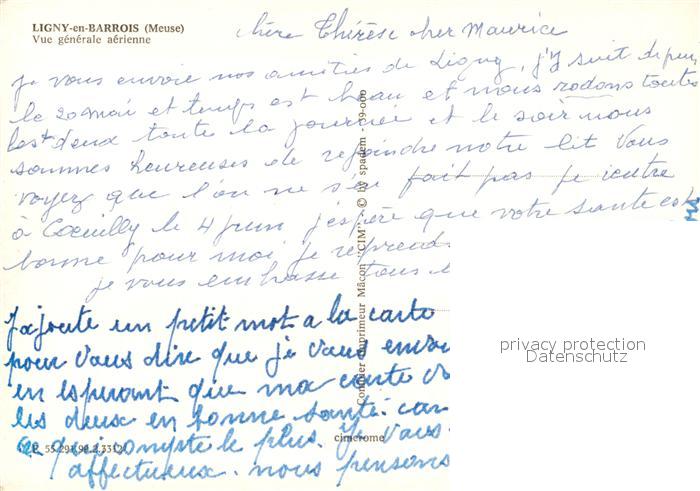 LIGNY-en-BARROIS (Meuse)
Vue générale aérienne
chère Thérèse cher Maurice
je vous envoie nos amitiés de Ligny, j'y suit depuis
le 20 mai et temps est beau et nous rodons toutes
les deux toute la journée et le soir nous
sommes heureuses de rejoindre notre lit Vous
voyez que l'on ne s'en fait pas je rentre
à Cœuilly le 4 juin j'espère que votre santé est
bonne pour moi je reprend
je vous embrasse tous
J'ajoute un petit mot a la carte
pour Vous dire que je Vous envoi
en esperant que ma carte
les deux en bonne santé. car
ce qui compte le plus. Je Vous
affectueux. nous pensons
Combier Imprimeur Mâcon "CIM" © by spadem - 69-000
cimcrome
privacy protection
Datenschutz